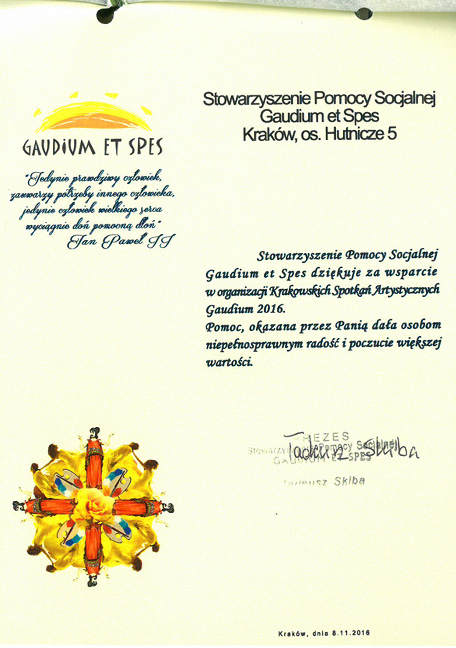 Stowarzyszenie Pomocy Socjalnej
Gaudium et Spes
Kraków, os. Hutnicze 5
GAUDIUM ET SPES
"Jedynie prawdziwy człowiek,
zauważy potrzeby innego człowieka,
jedynie człowiek wielkiego serca
wyciągnie doń pomocną dłoń"
Jan Paweł II
Stowarzyszenie Pomocy Socjalnej
Gaudium et Spes dziękuje za wsparcie
w organizacji Krakowskich Spotkań Artystycznych
Gaudium 2016.
Pomoc, okazana przez Panią dała osobom
niepełnosprawnym radość i poczucie większej
wartości.
PREZES
Stowarzyszenia Pomocy Socjalnej
GAUDIUM ET SPES
Tadeusz Skiba
Tadeusz Skiba
Kraków, dnia 8.11.2016